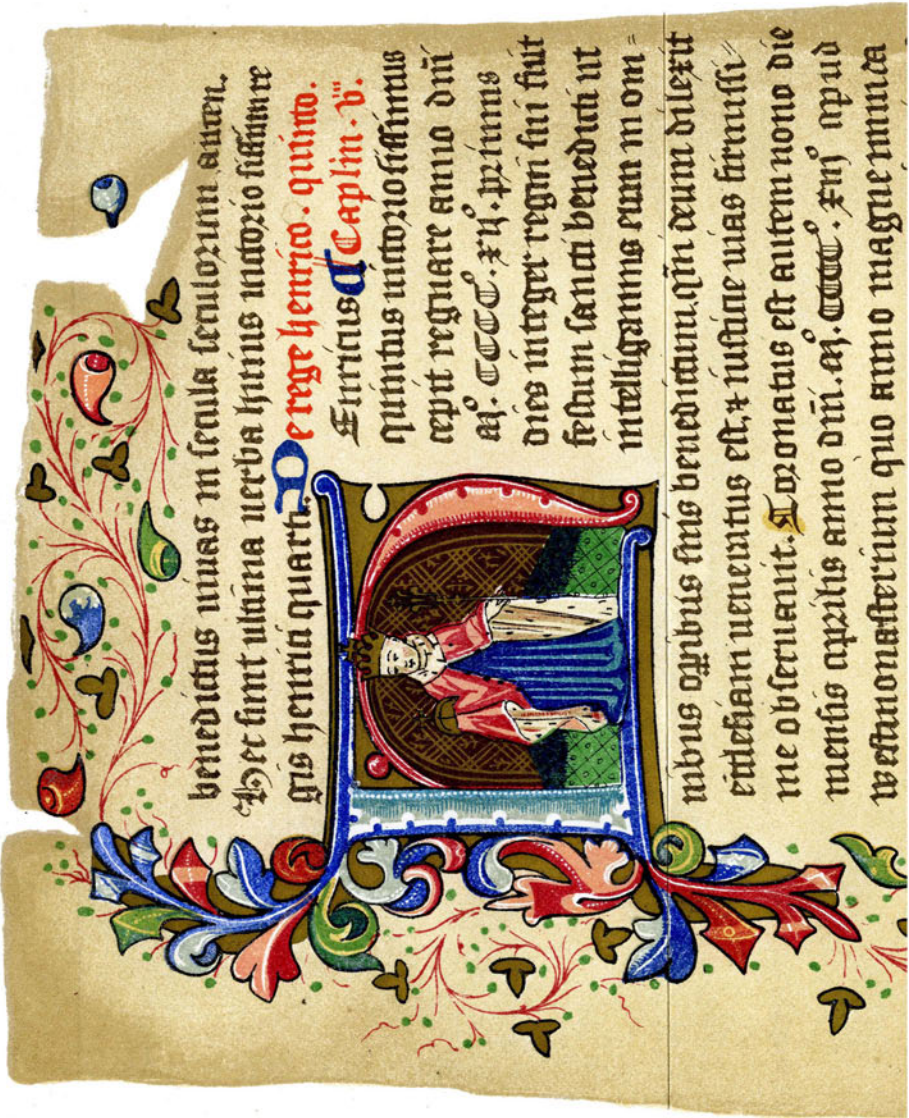 benedictus viuas in secula seculorum amen.
Hec sunt ultima uerba huius uictoriosissimi re
gis henrici quarti. De rege henrico. quinto.
Enricus ¶ Caplm. v.m
quintus uictoriosissimus
cepit regnare anno dñi
mͦ. CCCCͦ. xijͦ. primus
dies integer regni sui fuit
festum sancti benedicti ut
intelligamus eum in om=
nibus oꝑibus suis benedictum. qm̄ deum dilexit
ecclesiam ueneratus est, ⁊ iusticie uias firmissi=
me obseruauit. Coronatus est autem nono die
mensis aprilis anno dñi. mͦ. CCCCͦ. xiijͦ apud
westmonasterium quo anno magne